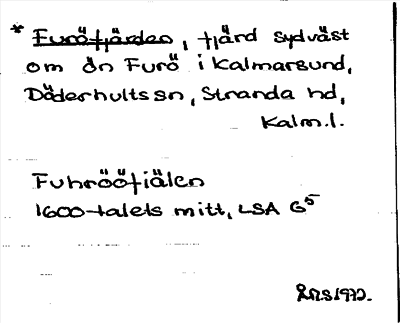 * Furöfjärden, fjärd sydväst
om ön Furö i Kalmarsund,
Döderhults sn, Stranda hd,
Kalm.l.
Fuhrööfiälen
1600-talets mitt, LSA G5
ÅRS 1972.